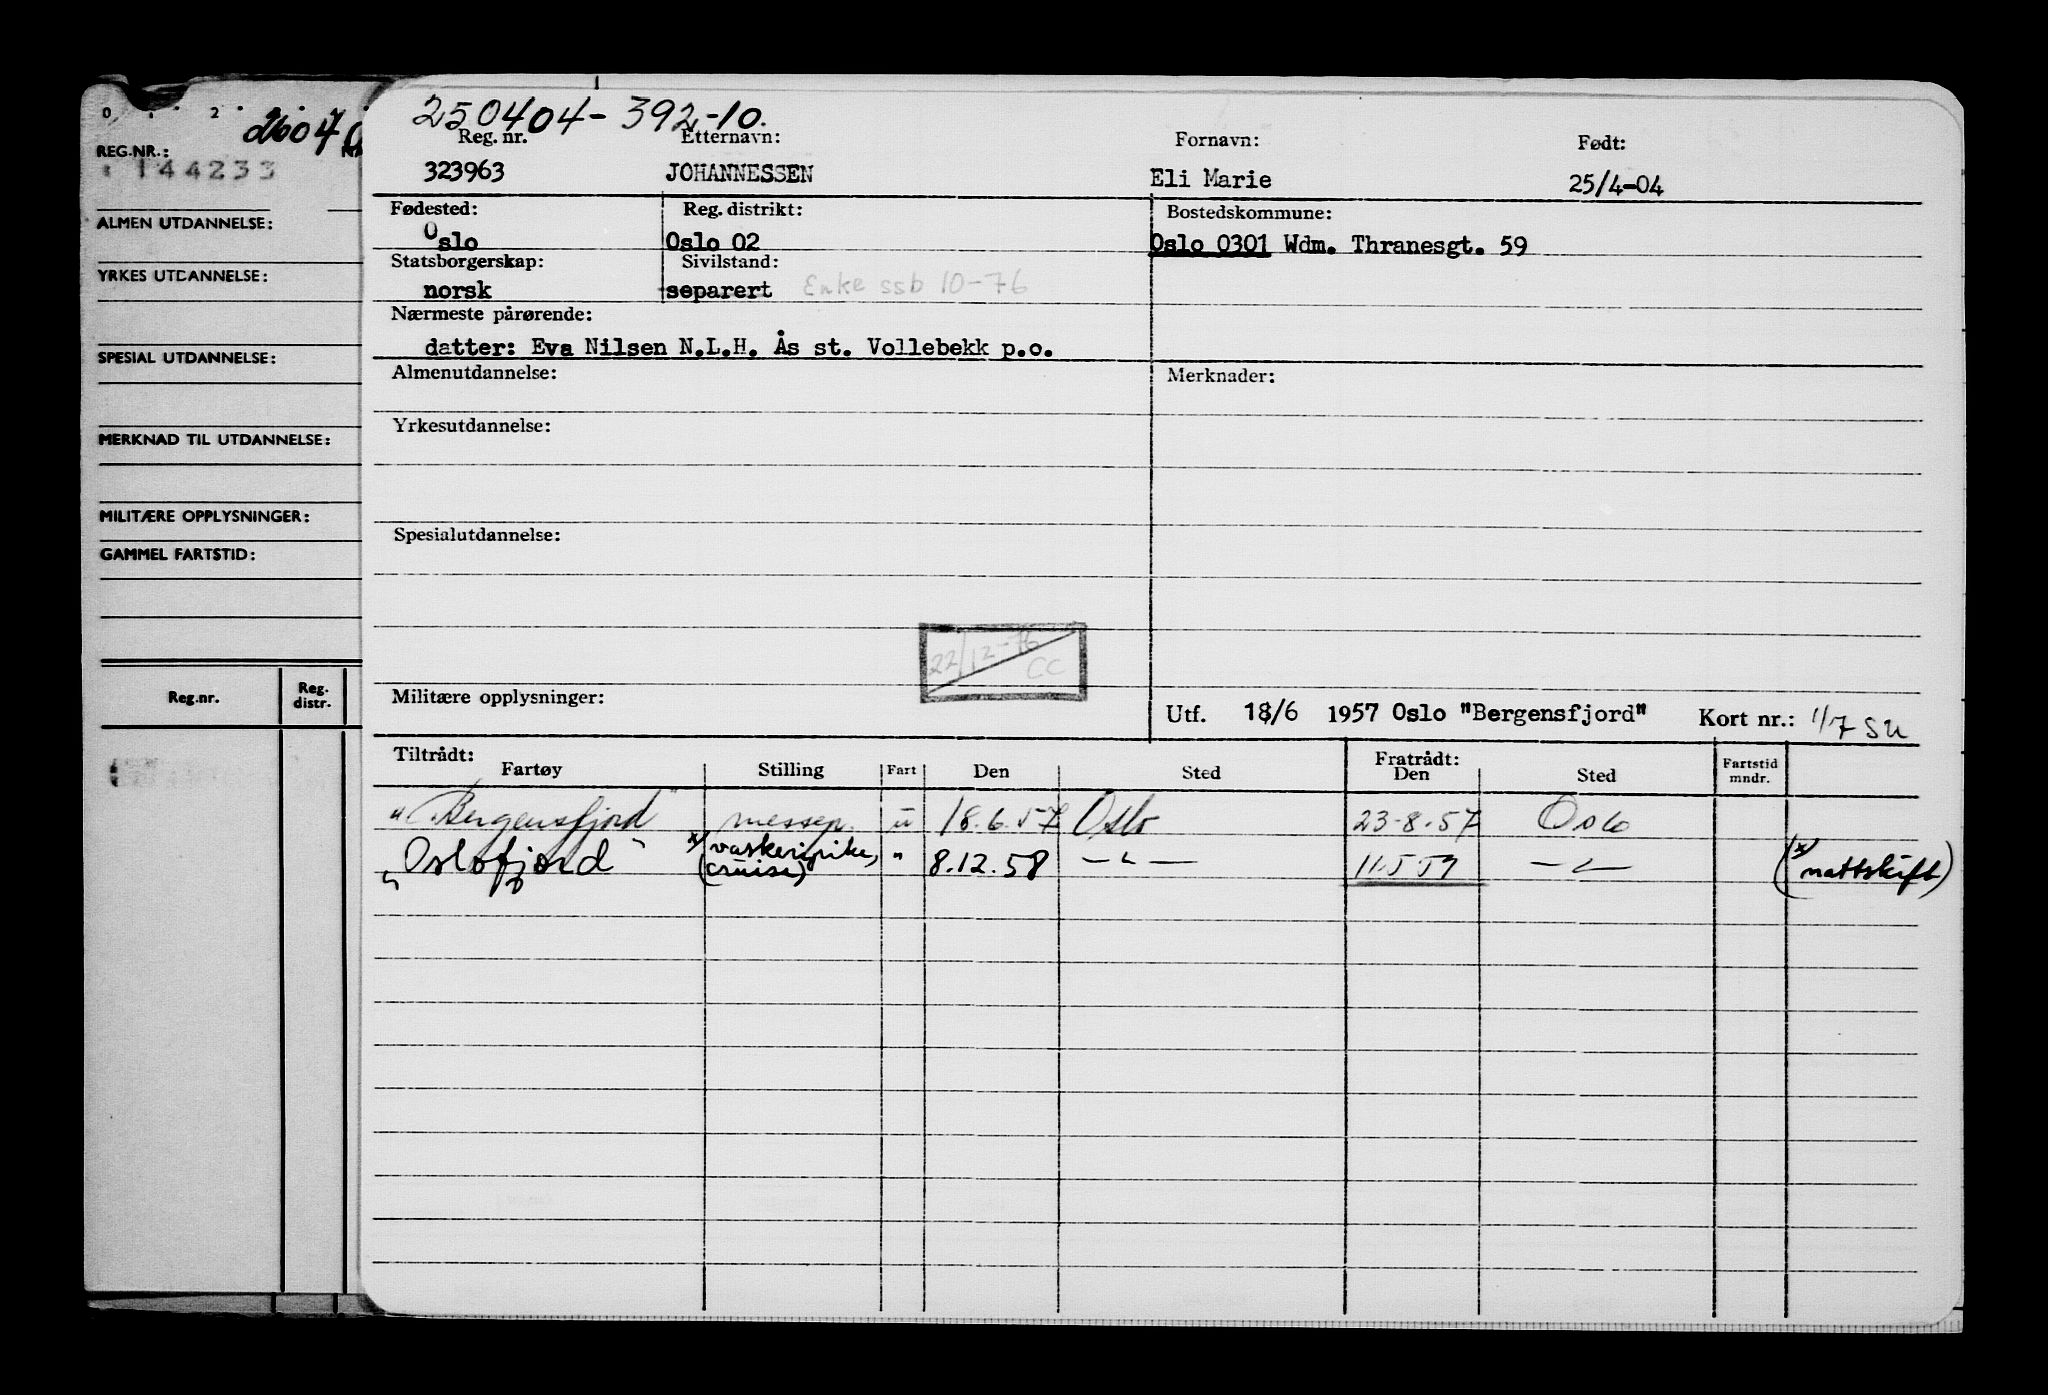 O . 2 .
26040
REG.NR.:
144233
ALMEN UTDANNELSE:
YRKES UTDANNELSE:
SPESIAL UTDANNELSE:
MERKNAD TIL UTDANNELSE:
MILITÆRE OPPLYSNINGER:
GAMMEL FARTSTID:
Reg.nr. Reg. distr.
250404-392-10.
Reg. nr. Etternavn: Fornavn: Født:
323963 JOHANNESSEN Eli Marie 25/4-04
Fødested: Reg. distrikt: Bostedskommune:
Oslo Oslo 02 Oslo 0301 Wdm. Thranesgt. 59
Statsborgerskap: Sivilstand:
norsk separert Enke ssb 10-76
Nærmeste pårørende:
datter: Eva Nilsen N.L.H. Ås st. Vollebekk p.o.
Almenutdannelse: Merknader:
Yrkesutdannelse:
Spesialutdannelse:
22/12-76 CC
Militære opplysninger:
Utf. 18/6 1957 Oslo "Bergensfjord" Kort nr.: 1/7 SU
Tiltrådt: Fratrådt:
Fartøy Stilling Fart Den Sted Den Sted Fartstid mndr.
"Bergensfjord" messep. u 18.6.57 Oslo 23-8.57 Oslo
"Oslofjord" x) vaskeripike, (cruise) " 8.12.58 — " — 11.5 59 — " — (x) nattskift)